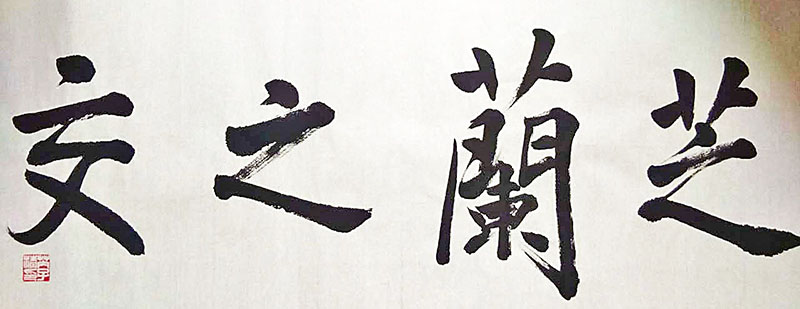 芝蘭之交